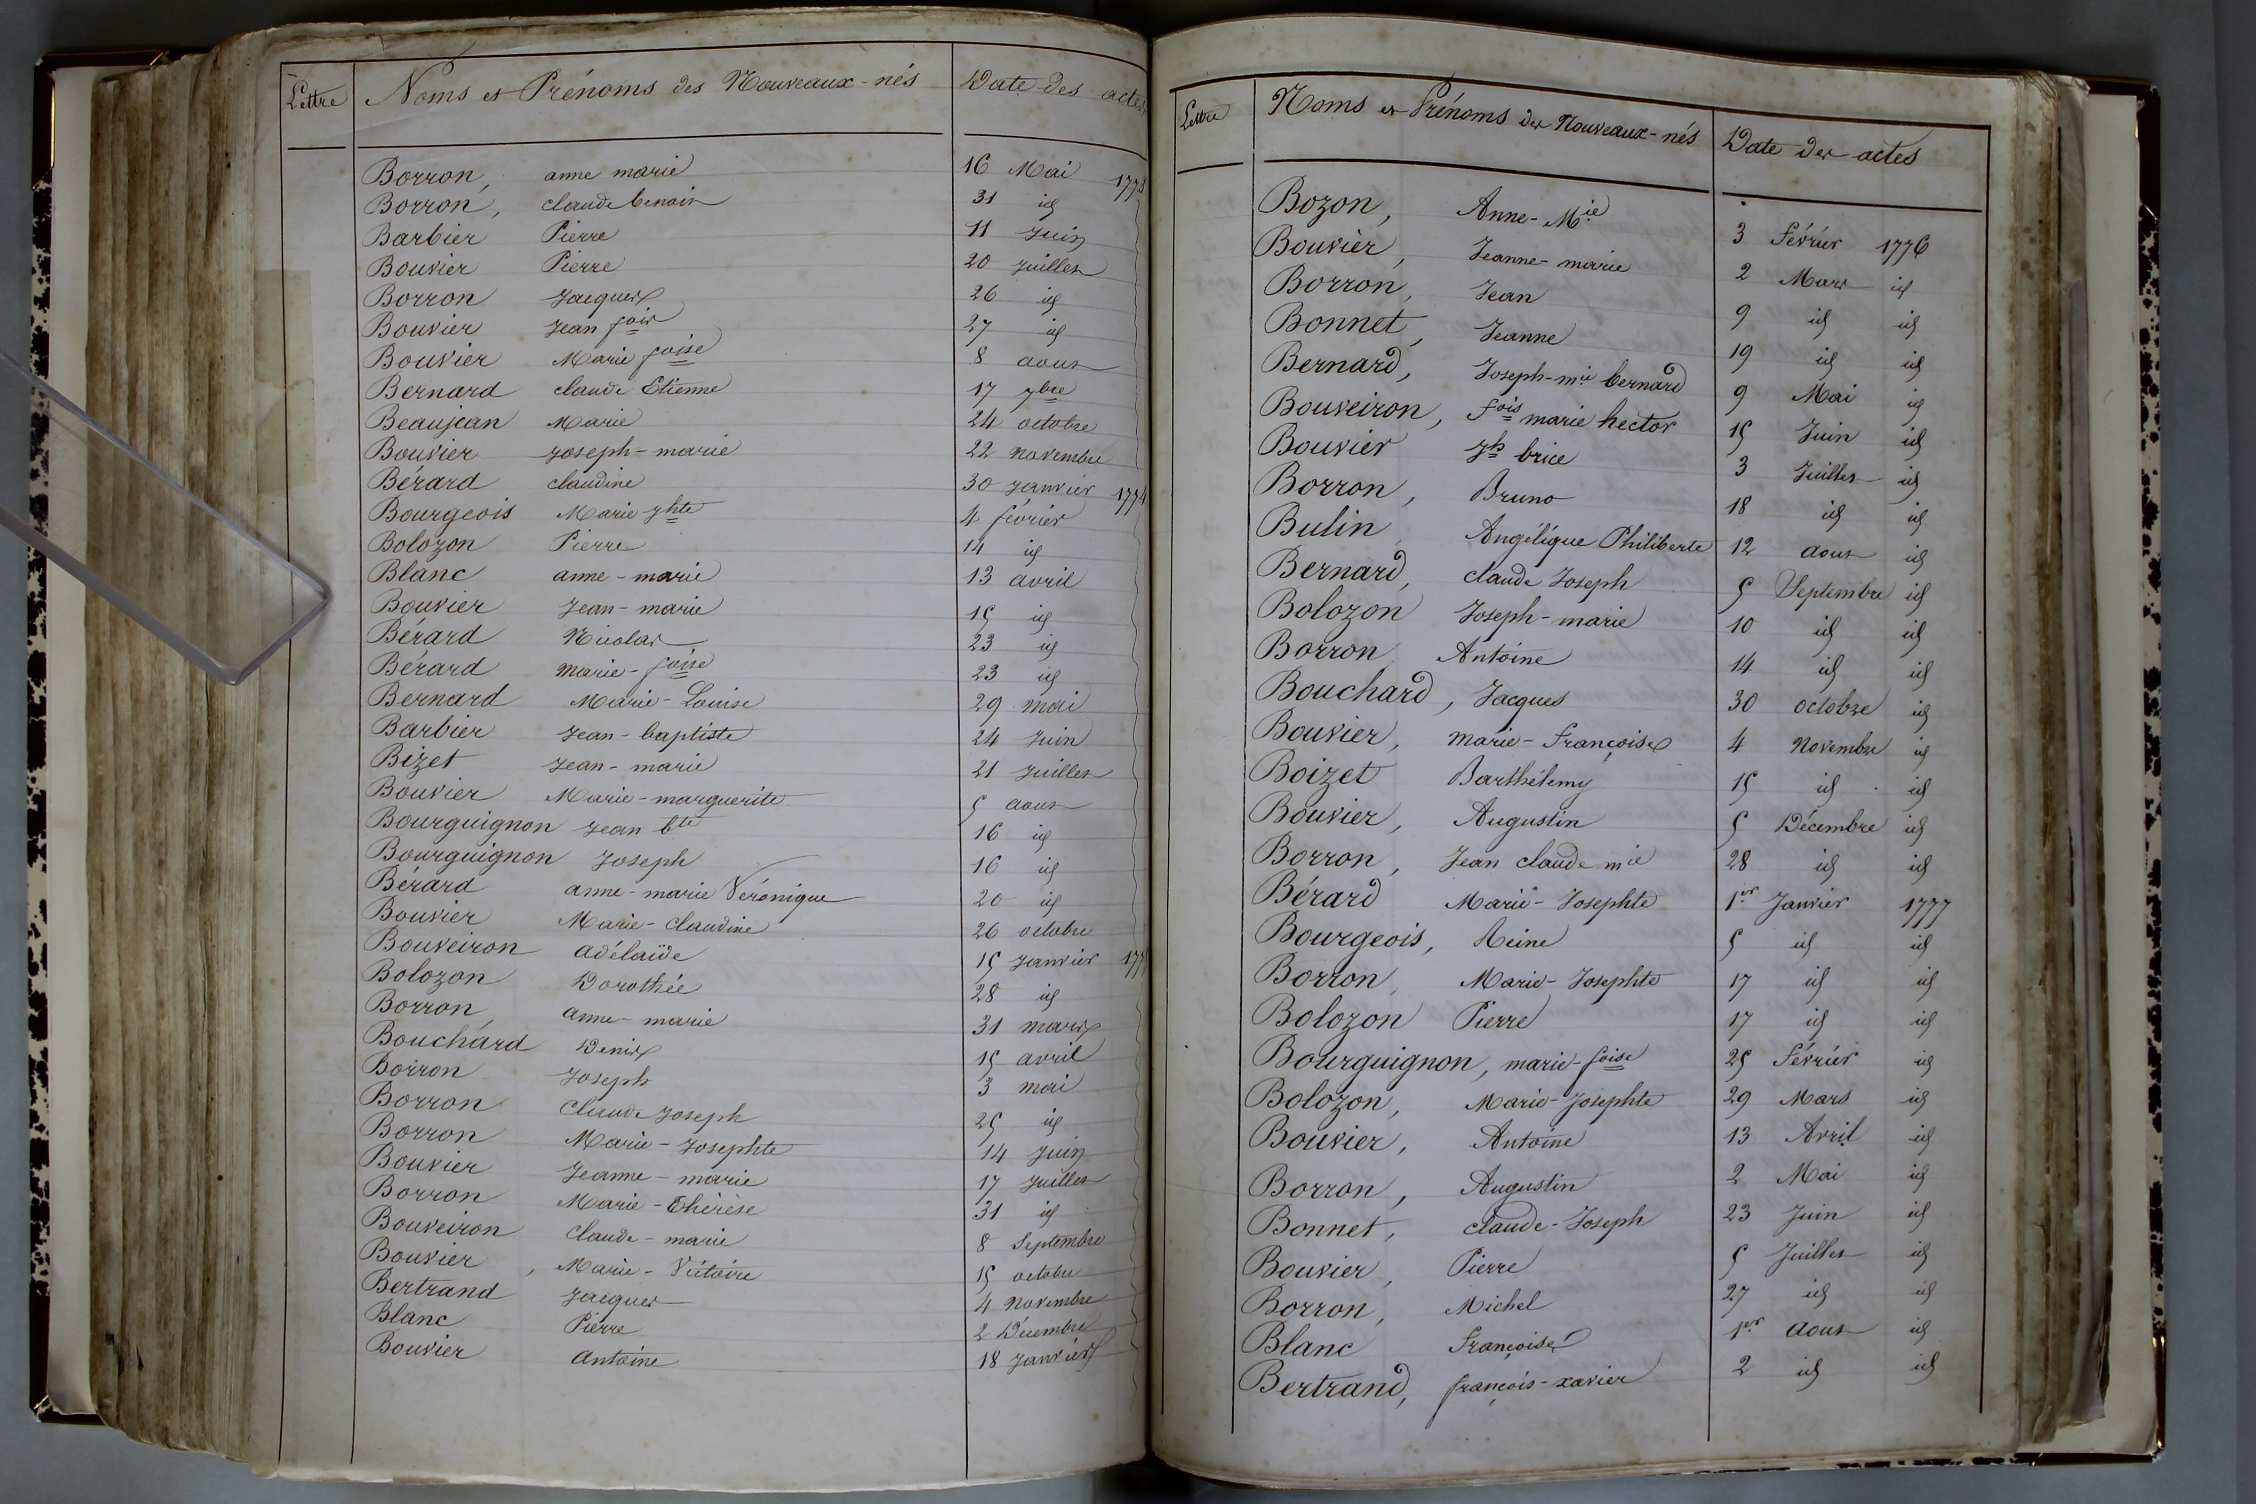 Lettre Noms et Prénoms des Nouveaux-nés Date des actes
Borron, anne marie 16 Mai 1773
Borron, claude benoit 31 id
Barbier Pierre 11 Juin
Bouvier Pierre 20 Juillet
Borron Jacques 26 id
Bouvier Jean fois 27 id
Bouvier Marie foise 8 aout
Bernard claude Etienne 17 7bre
Beaujean Marie 24 octobre
Bouvier Joseph-marie 22 novembre
Bérard claudine 30 Janvier 1774
Bourgeois Marie jhte 4 février
Bolozon Pierre 14 id
Blanc anne-marie 13 avril
Bouvier Jean-marie 15 id
Bérard Nicolas 23 id
Bérard Marie-foise 23 id
Bernard Marie-Louise 29 mai
Barbier Jean-baptiste 24 Juin
Bizet Jean-marie 21 Juillet
Bouvier Marie-marguerite 5 aout
Bourguignon Jean bte 16 id
Bourguignon Joseph 16 id
Bérard anne-marie Véronique 20 id
Bouvier Marie-claudine 26 octobre
Bouveiron adélaïde 15 Janvier 177
Bolozon Dorothée 28 id
Borron, anne-marie 31 mars
Bouchard Denis 15 avril
Borron Joseph 3 mai
Borron Claude Joseph 25 id
Borron Marie-Josephte 14 Juin
Bouvier Jeanne-marie 17 Juillet
Borron Marie-Thérèse 31 id
Bouveiron claude-marie 8 Septembre
Bouvier, Marie-Victoire 15 octobre
Bertrand Jacques 4 Novembre
Blanc Pierre 2 Décembre
Bouvier antoine 18 Janvier
Lettre Noms et Prénoms des Nouveaux-nés Date des actes
Bozon, Anne-Mie 3 Février 1776
Bouvier, Jeanne-marie 2 Mars id
Borron, Jean 9 id id
Bonnet, Jeanne 19 id id
Bernard, Joseph-mie bernard 9 Mai id
Bouveiron, fois marie hector 15 Juin id
Bouvier Jh brice 3 Juillet id
Borron, Bruno 18 id id
Bulin Angélique Philiberte 12 aout id
Bernard, claude Joseph 5 Septembre id
Bolozon Joseph-marie 10 id id
Borron Antoine 14 id id
Bouchard, Jacques 30 octobre id
Bouvier, Marie-françoise 4 Novembre id
Boizet Barthélemy 15 id id
Bouvier, Augustin 5 Décembre id
Borron, Jean claude mie 28 id id
Bérard Marie-Josephte 1er Janvier 1777
Bourgeois, Reine 5 id id
Borron, Marie-Josephte 17 id id
Bolozon Pierre 17 id id
Bourguignon, marie-foise 25 Février id
Bolozon, Marie-Josephte 29 Mars id
Bouvier, Antoine 13 Avril id
Borron, Augustin 2 Mai id
Bonnet, claude-Joseph 23 Juin id
Bouvier, Pierre 5 Juillet id
Borron, Michel 27 id id
Blanc françoise 1er aout id
Bertrand, françois-xavier 2 id id